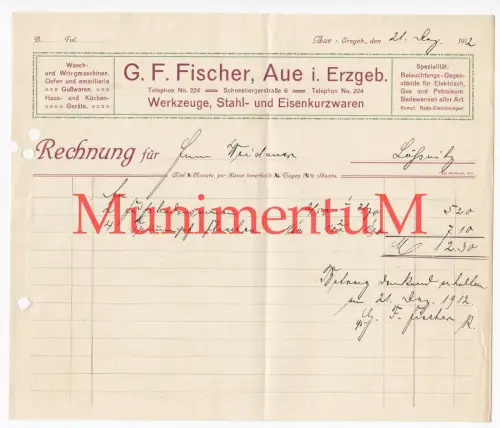 B. Fol. Aue i. Erzgeb., den 21. Dez. 1912
Wasch- und Wringmaschinen.
Oefen und emaillierte
Gußwaren.
Haus- und Küchen-
Geräte.
G. F. Fischer, Aue i. Erzgeb.
Telephon No. 224 Schneebergerstraße 6 Telephon No. 224
Werkzeuge, Stahl- und Eisenkurzwaren
Spezialität:
Beleuchtungs-Gegen-
stände für Elektrisch,
Gas und Petroleum
Badewannen aller Art
Kompl. Bade-Einrichtungen
Rechnung für Herrn Weidauer Lößnitz
Ziel Monate, per Kasse innerhalb Tagen % Skonto.
MunimentuM
2 5 20
4 7.10
M 12.30
Betrag dankend erhalten
am 21. Dez. 1912.
G. F. Fischer
R.